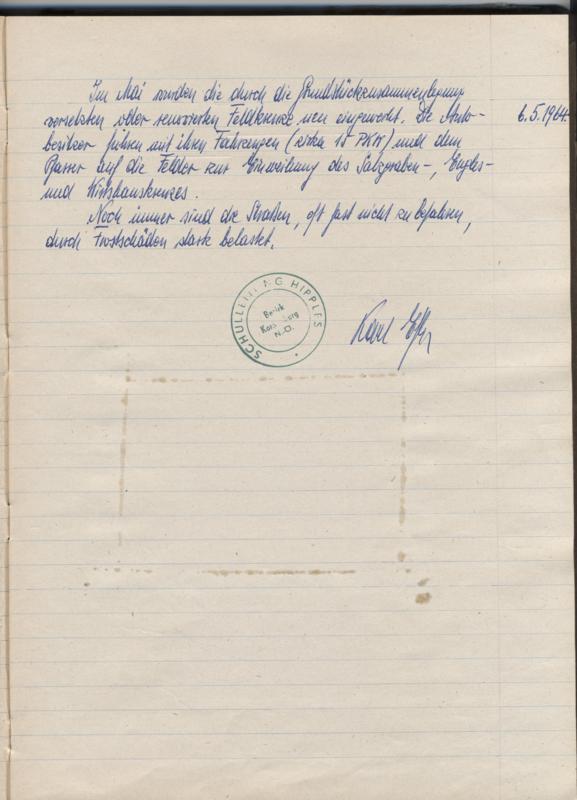 Im Mai wurden die durch die Grundstückzusammenlegung
versetzten oder renovierten Feldkreuze neu eingeweiht. Die Auto-
6.5.1964.
besitzer führen mit ihren Fahrzeugen (zirka 15 PKW) und dem
Pfarrer auf die Felder zur Einweihung des Salzgraben-, Engles-
und Wirtshauskreuzes.
Noch immer sind die Straßen, oft fast nicht zu befahren,
durch Frostschäden stark belastet.
SCHULLEITUNG HIPPLES
Bezirk
Korneuburg
N.-Ö.
Karl